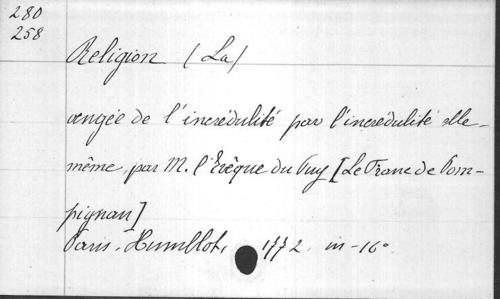 280
258
Religion (La)
vengée de l'incrédulité par l'incrédulité elle-
même, par M. l'Evêque du Puy [Le Franc de Pom-
pignan]
Paris, Humblot, 1772 in-16°